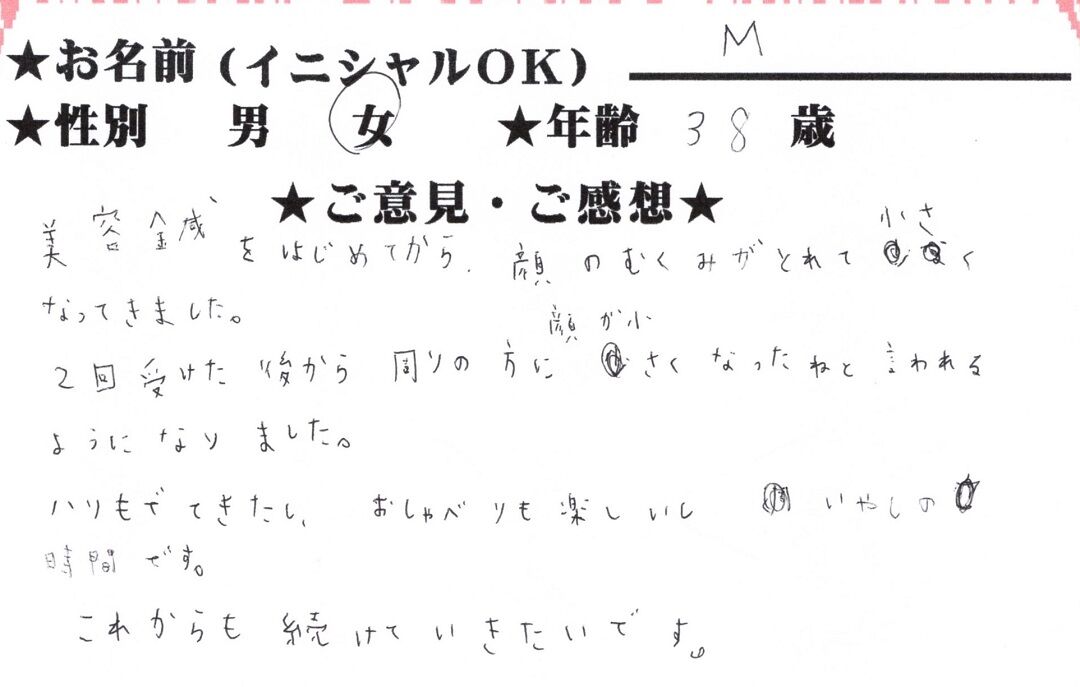 ★お名前（イニシャルOK） M
★性別 男 女 ★年齢 38 歳
★ご意見・ご感想★
美容鍼をはじめてから、顔のむくみがとれて小さく
なってきました。
2回受けた後から周りの方に顔が小さくなったねと言われる
ようになりました。
ハリもでてきたし、おしゃべりも楽しいし いやしの
時間です。
これからも続けていきたいです。